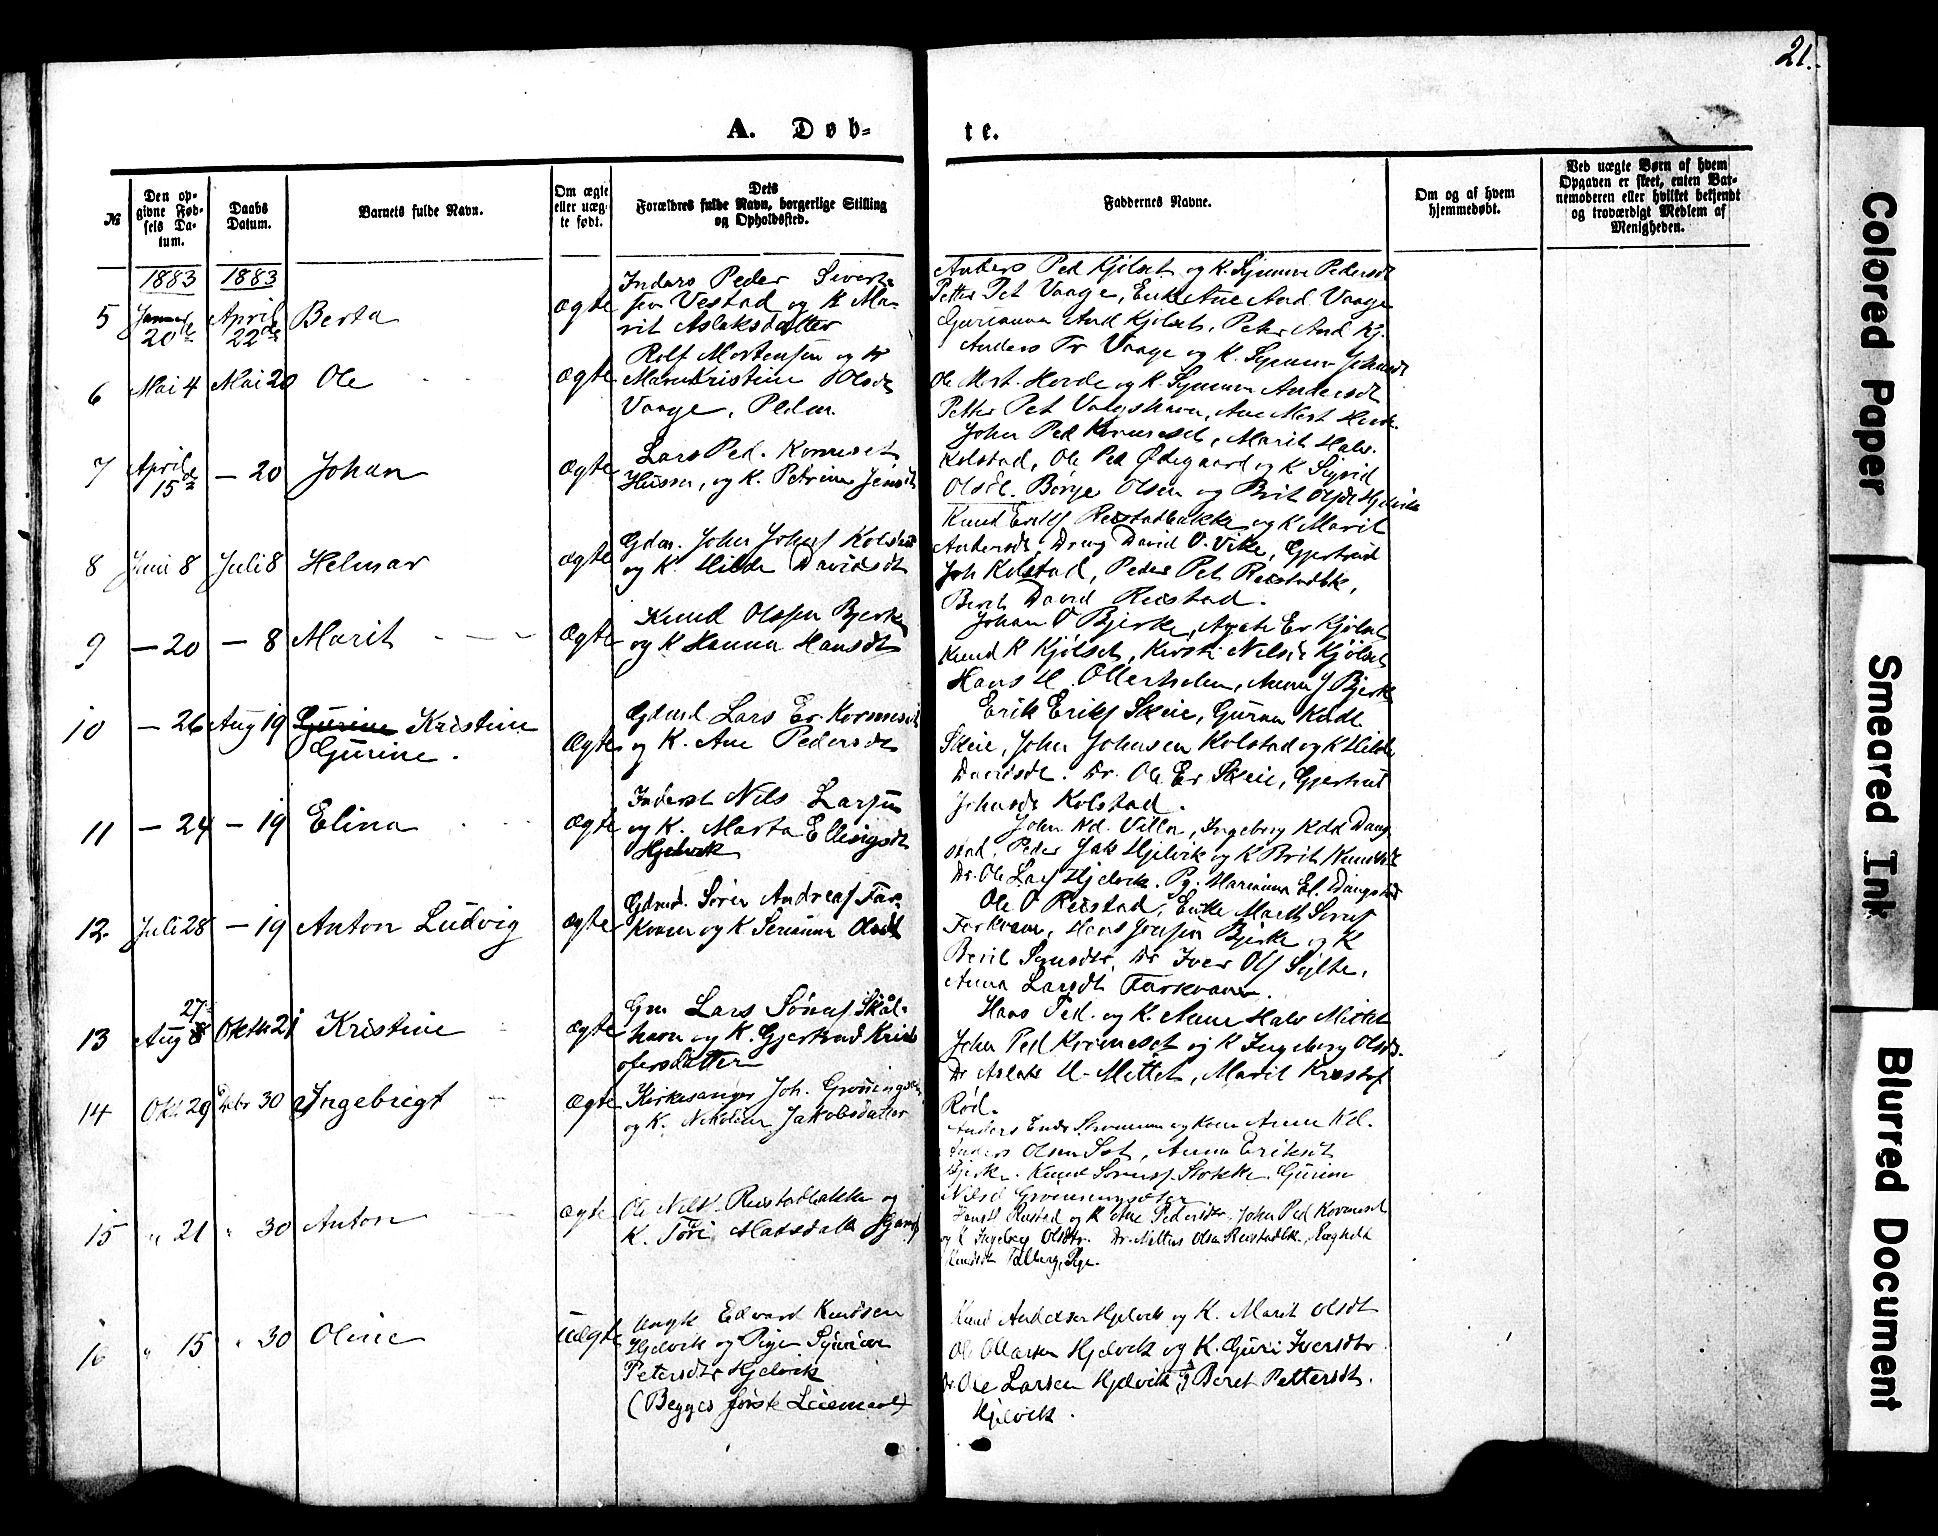 21.
A. Døb-
te.
№
Den op-
givne Fød-
sels Da-
tum.
Daabs
Datum.
Barnets fulde Navn.
Om ægte
eller uæg-
te født.
Dets
Forældres fulde Navn, borgerlige Stilling
og Opholdssted.
Faddernes Navne.
Om og af hvem
hjemmedøbt.
Ved uægte Børn af hvem
Opgaven er skeet, enten Bar-
nemoderen eller hvilket bekjendt
og troværdigt Medlem af
Menigheden.
1883
1883
5
Januar
20de
April
22de
Berta
Ægte
Inders Peder Sivert-
sen Vestad og K Ma-
rit Aslaksdatter
Anders Ped Kjølset og K. Synnøve Pedersdt
Petter Pet Vaage, Enke Ane And Vaage
Gurianna And Kjølset, Peter And Kj.
6
Mai 4
Mai 20
Ole
Ægte
Rolf Mortensen og K
Maren Kristine Olsdt
Vaage,
Anders Tr Vaage og K. Synnøve
Ole Mort. Horde og K. Synnøve Andersdt
Petter Pet Vaagshavn, Ane Mort
7
April
15de
— 20
Johan
Ægte
Lars Ped. Korneset
og K. Petrine Jensdt
John Ped Korneset, Marit Halv.
Kolstad, Ole Ped Ødegaard og K Sigrid
Olsdt. Børge Olsen og Brit Olsdt Hjelvik
8
Juni 8
Juli 8
Helmar
Ægte
Gdm. John Johns Kolstad
og K. Hilde Davidsdt
Knud Eriks Reistadbakke og K Marit
Andersdt, Dreng David O. Vike, Gjertrud
Joh Kolstad, Peder Pet Reistadbk,
Berit David Reistad.
9
— 20
— 8
Marit
Ægte
Knud Olssen Bjerke
og K Hanna Hansdt
Johan O Bjerke, Agate Er Kjølset
Knud K Kjölset, Kirsti Nelsdt Kjölset
Hans H. Ollerholm, Anna J Bjerke
10
— 26
Aug 19
Gurine Kristine
Gurine.
Ægte
Gdmd Lars Er. Korneset
og K. Ane Pedersdt
Erik Eriks Skeie, Guran Kndt
Skeie, John Johnsen Kolstad og K Hilde
Davidsdt. Dr. Ole Er Skeie, Gjertrud
Johnsdt Kolstad.
11
— 24
— 19
Elina
Ægte
Inderst Nils Larsen
og K. Marta Ellingsdt
Hjelvik
John Kd. Villa, Ingeborg Kdt Daug-
stad, Peder Jak Hjelvik og K Brit Knudsdt
Dr. Ole Lars Hjelvik. Pg. Marianna El. Daugstad
12.
Juli 28
— 19
Anton Ludvig
Ægte
Gdmd. Sören Andreas Far-
kvam og K Serianna Olsdt
Ole O Reistad, Enke Marit Sørens
Farkvam, Hans Jonsen Bjerke og K
Beril Syvsdtr, Dr Iver Ols Sylte,
Anna Larsdt Farkvam.
13
27
Aug 8
Oktbr 21
Kristine
Ægte
Gm Lars Sørens Skål-
havn og K. Gjertrud Krist
ofersdatter
Hans Ped. og K. Anne Halv Mittet
John Ped Korneset og K Ingeborg Olsdt.
Dr Aslak H. Mittet, Marit Kristof
Rød.
14
Okt 29
Debr 30
Ingebrigt
Ægte
Kirkesanger Joh. Grønningsæter
og K. Nikoline Jakobsdatter
Anders Knds Stromman og Kone Anne Kd.
Anders Olsen Set, Anna Eriksdt
Bjerke. Knud Sørens Stokke. Gurine
Nilsd Grønningsæter
15
" 21
" 30
Anton
Ægte
Ole Nils Reistadbakke og
K. Töri Madsdatt
Hans H Reistad og K Ane Pedersdtr. John Ped Korneset
og K Ingeborg Olsdtr. Dr. Nilles Olsen Reistadbk., Ragnhild
Knudsdt Talberg, Pige.
16
" 15
" 30
Oline
Uægte
Ungk Edvard Knudsen
Hjelvik og Pige Synnøve
Petersdtr Hjelvik
(Begges første Leiermaal)
Knud Andersen Hjelvik og K. Marit Olsdt
Ole OLarsen Hjelvik og K. Guri Iversdtr
Dr. Ole Larsen Hjelvik & Beret Pettersdt.
Hjelvik.
Colored Paper
Smeared Ink
Blurred Document